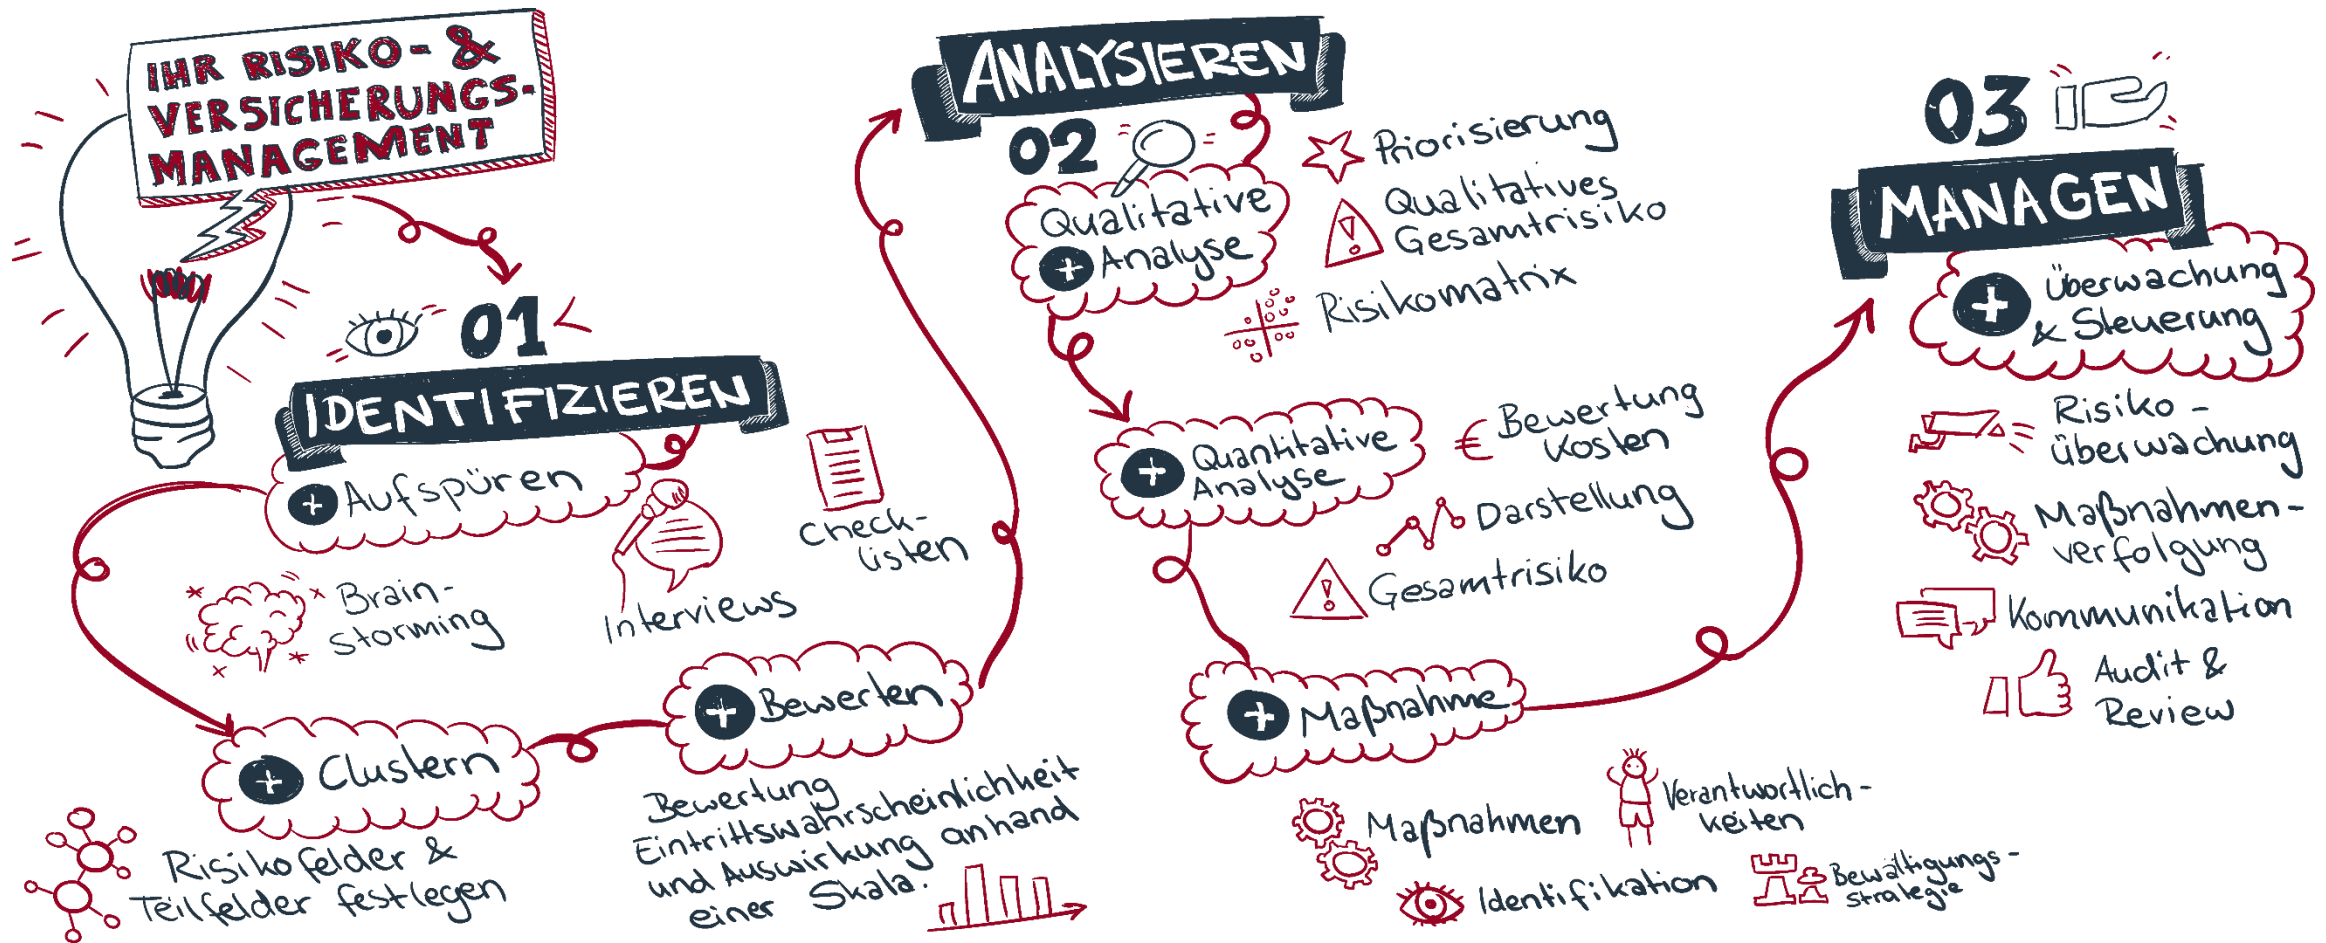 IHR RISIKO- &
VERSICHERUNGS-
MANAGEMENT
01
IDENTIFIZIEREN
+ Aufspüren
Brain-
storming
Interviews
Check-
listen
+ Clustern
Risikofelder &
Teilfelder festlegen
+ Bewerten
Bewertung
Eintrittswahrscheinlichkeit
und Auswirkung anhand
einer Skala.
ANALYSIEREN
02
Qualitative
+ Analyse
Priorisierung
Qualitatives
Gesamtrisiko
Risikomatrix
+ Quantitative
Analyse
€ Bewertung
Kosten
Darstellung
Gesamtrisiko
+ Maßnahme
Maßnahmen
Verantwortlich-
keiten
Identifikation
Bewältigungs-
strategie
03
MANAGEN
+ Überwachung
& Steuerung
Risiko-
überwachung
Maßnahmen-
verfolgung
Kommunikation
Audit &
Review